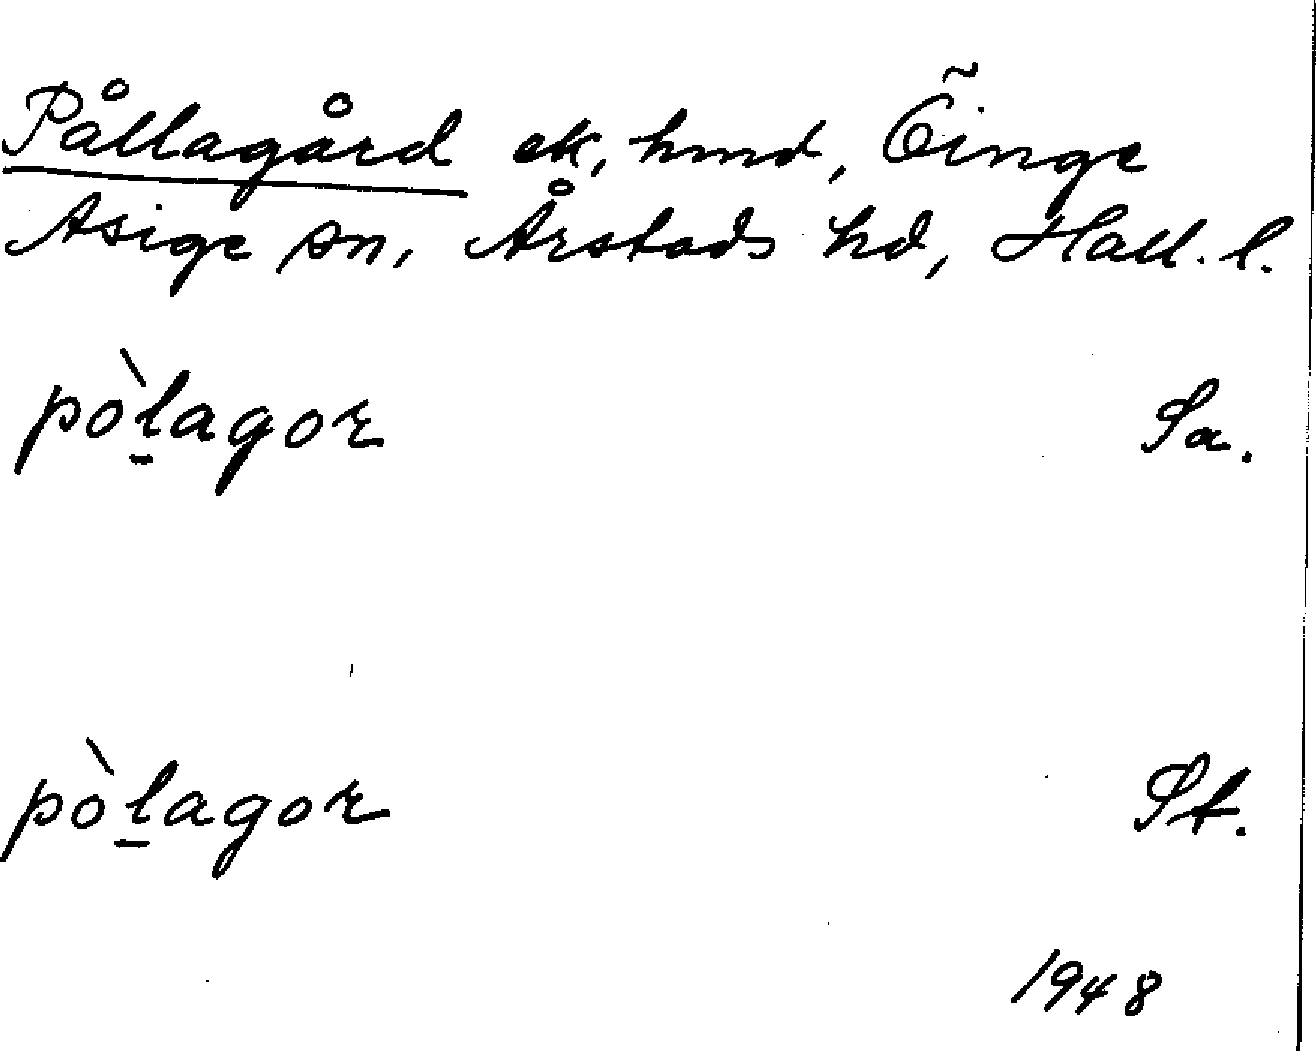 Pållagård ek, hmd, Öinge
Asige sn, Årstads hd, Hall. l.
pòl̠agor Sa.
pòl̠agor St.
1948